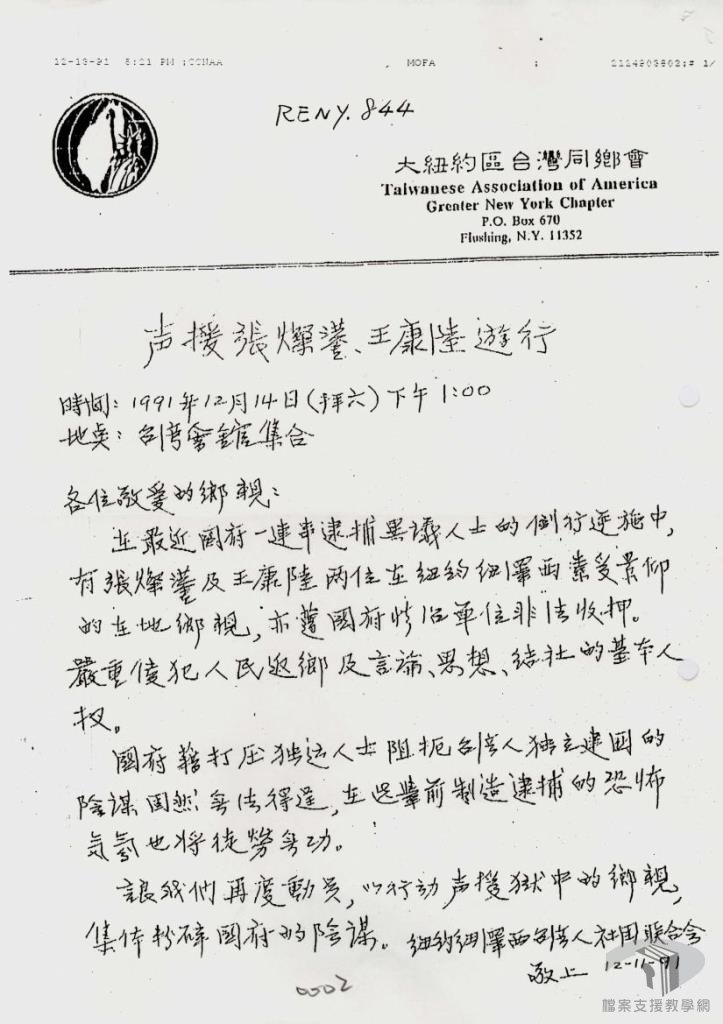 12-13-91 5:21 PM ;CCNAA MOFA ; 2124903802;# 1/
RENY. 844
大紐約區台灣同鄉會
Taiwanese Association of America
Greater New York Chapter
P.O. Box 670
Flushing, N.Y. 11352
声援張燦鍙、王康陸遊行
時间: 1991年12月14日(拜六)下午1:00
地奌: 台湾會舘集合
各位敬爱的鄉親:
在最近國府一連串逮捕異議人士的倒行逆施中,
有張燦鍙及王康陸两位在紐約紐澤西素受景仰
的在地鄉親,亦舊國府情治單位非法收押。
嚴重侵犯人民返鄉及言論、思想、结社的基本人
权。
國府藉打压独运人士阻扼台湾人独立建国的
陰謀固然無法得逞,在选舉前制造逮捕的恐怖
気氛也将徒勞無功。
讓我們再度動員,以行动声援獄中的鄉親,
集体粉碎國府的陰謀。 紐約紐澤西台湾人社团联合会
敬上 12-11-91
0002
檔案支援教學網